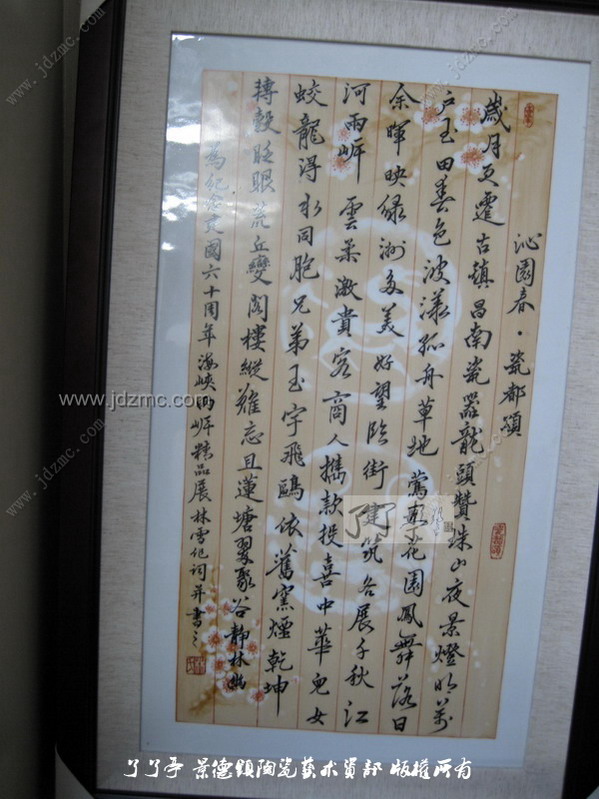 沁園春·瓷都頌
歲月更遷古鎮昌南瓷器龍頭贊珠山夜景燈明萬
戶玉田春色波漾孤舟草地鶯花園鳳舞落日
余暉映綠洲多美好望臨街建筑各展千秋江
河兩岸雲柔激貴客商人攜款投喜中華兒女
蛟龍得水同胞兄弟玉宇飛鷗依舊窯煙乾坤
轉轂眨眼荒丘變閣樓縱難忘且蓮塘翠聚谷靜林幽
為紀念建國六十周年海峽兩岸精品展林雪化詞并書之
www.jdzmc.com
了了亭 景德鎮陶瓷藝术資訊 版權所有